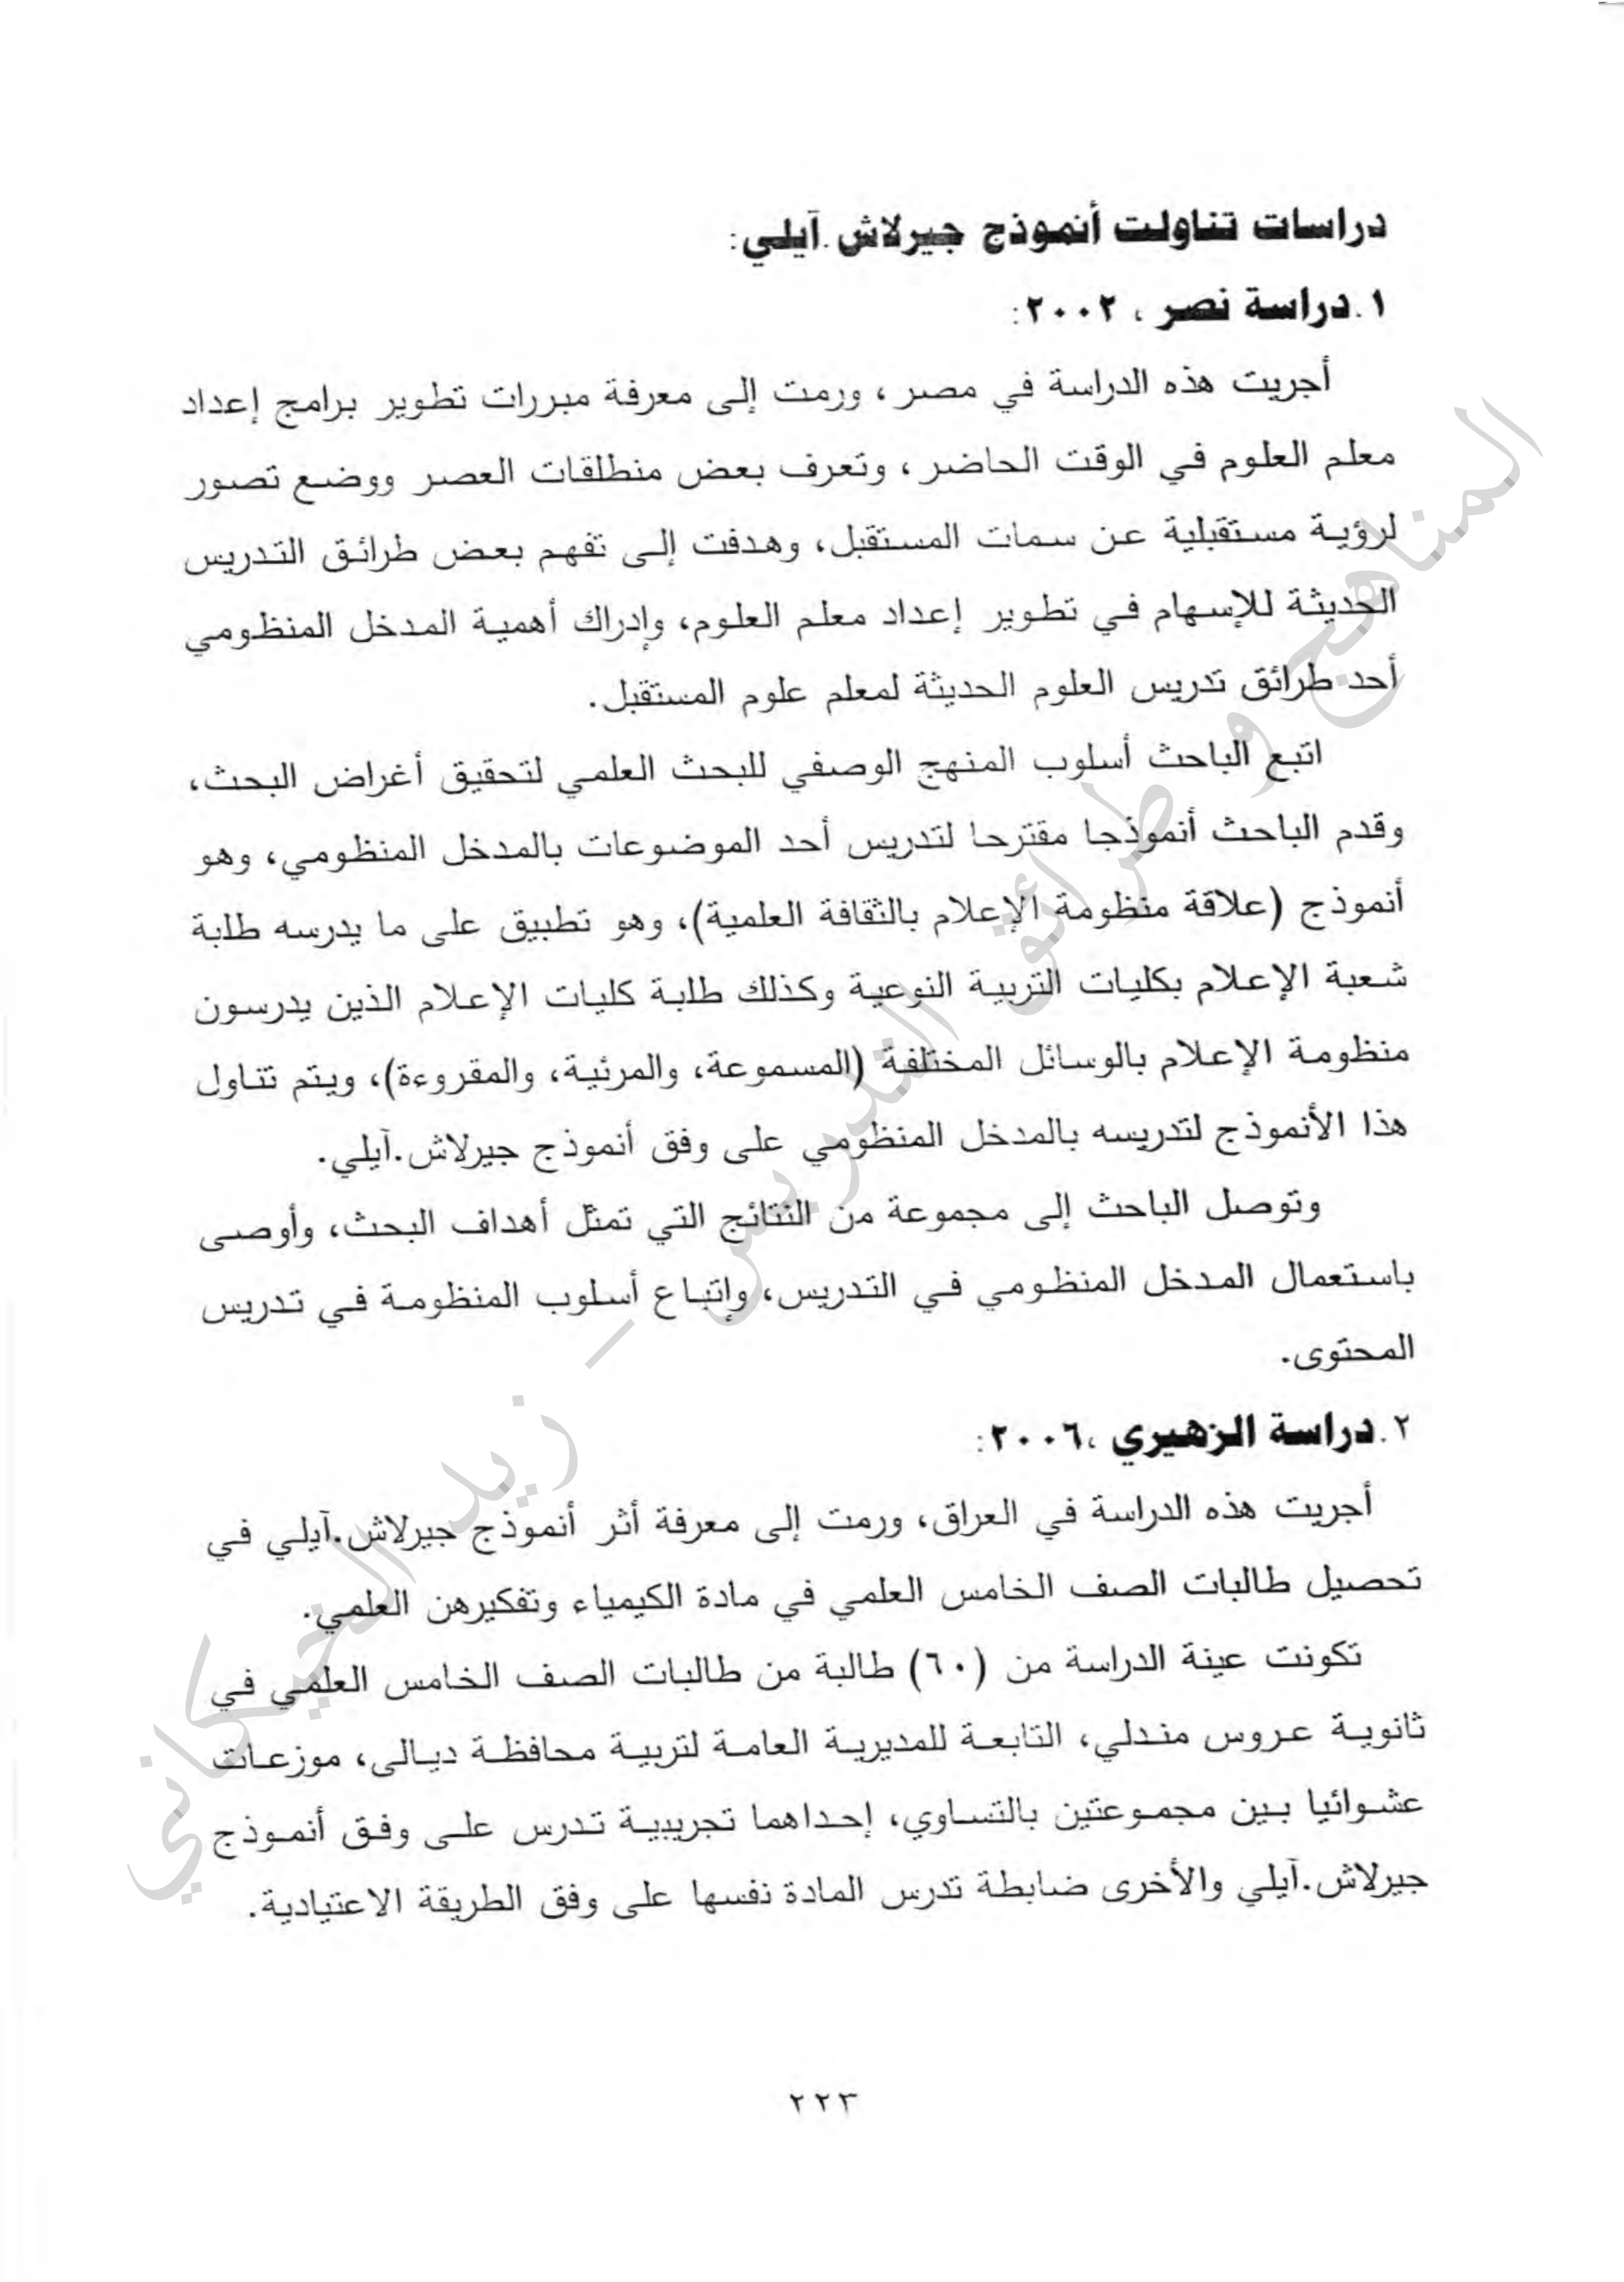 دراسات تناولت أنموذج جيرلاش.آيلي:
١.دراسة نصر ، ٢٠٠٢:
أجريت هذه الدراسة في مصر ، ورمت إلى معرفة مبررات تطوير برامج إعداد
معلم العلوم في الوقت الحاضر ، وتعرف بعض منطلقات العصر ووضع تصور
لرؤية مستقبلية عن سمات المستقبل، وهدفت إلى تفهم بعض طرائق التدريس
الحديثة للإسهام في تطوير إعداد معلم العلوم، وإدراك أهمية المدخل المنظومي
أحد طرائق تدريس العلوم الحديثة لمعلم علوم المستقبل.
اتبع الباحث أسلوب المنهج الوصفي للبحث العلمي لتحقيق أغراض البحث،
وقدم الباحث أنموذجا مقترحا لتدريس أحد الموضوعات بالمدخل المنظومي، وهو
أنموذج (علاقة منظومة الإعلام بالثقافة العلمية)، وهو تطبيق على ما يدرسه طلبة
شعبة الإعلام بكليات التربية النوعية وكذلك طلبة كليات الإعلام الذين يدرسون
منظومة الإعلام بالوسائل المختلفة (المسموعة، والمرئية، والمقروءة)، ويتم تتاول
هذا الأنموذج لتدريسه بالمدخل المنظومي على وفق أنموذج جيرلاش.آيلي.
وتوصل الباحث إلى مجموعة من النتائج التي تمثل أهداف البحث، وأوصى
باستعمال المدخل المنظومي في التدريس، وإتباع أسلوب المنظومة في تدريس
المحتوى.
٢.دراسة الزهيري ،٢٠٠٦:
أجريت هذه الدراسة في العراق، ورمت إلى معرفة أثر أنموذج جيرلاش.آيلي في
تحصيل طالبات الصف الخامس العلمي في مادة الكيمياء وتفكيرهن العلمي.
تكونت عينة الدراسة من (٦٠) طالبة من طالبات الصف الخامس العلمي في
ثانوية عروس مندلي، التابعة للمديرية العامة لتربية محافظة ديالى، موزعات
عشوائيا بين مجموعتين بالتساوي، إحداهما تجريبية تدرس على وفق أنموذج
جيرلاش.آيلي والأخرى ضابطة تدرس المادة نفسها على وفق الطريقة الاعتيادية.
٢٢٣
المناهج وطرائق التدريس – زيد الخيكاني